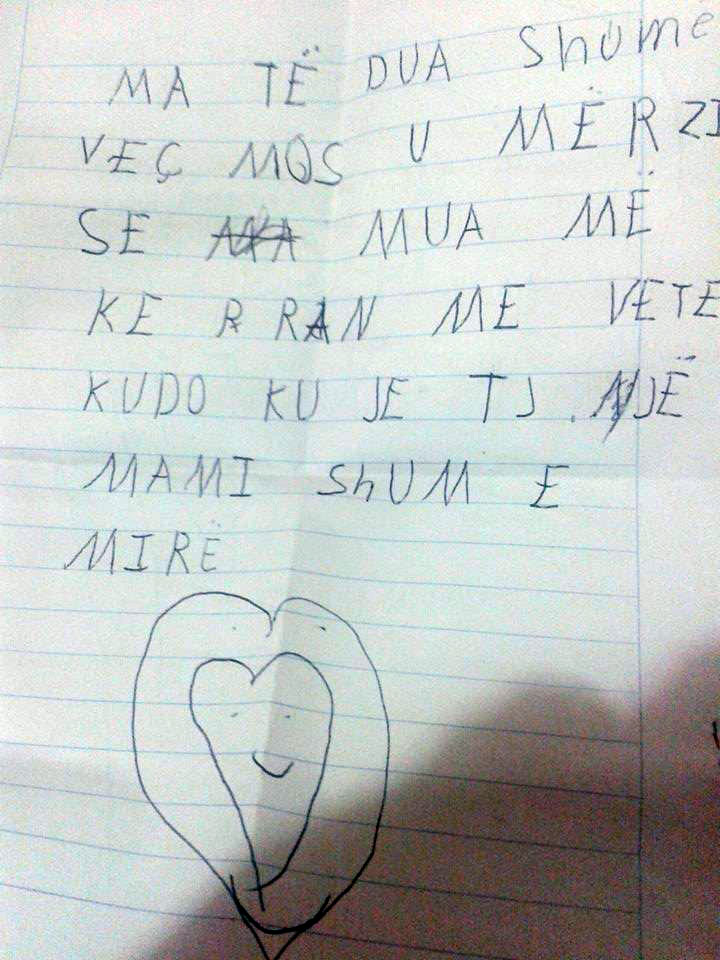 MA TË DUA Shumë
VEÇ MOS U MËRZI
SE MUA MË
KE RRAN ME VETE
KUDO KU JE TJ. NJË
MAMI ShUM E
MIRË